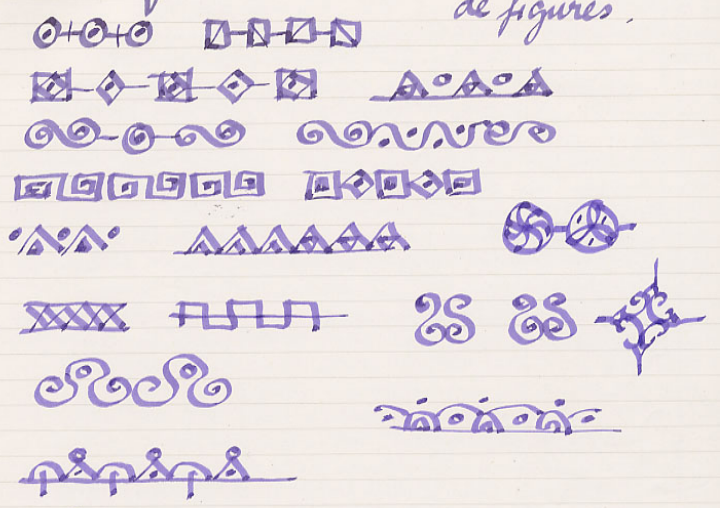 de figures.